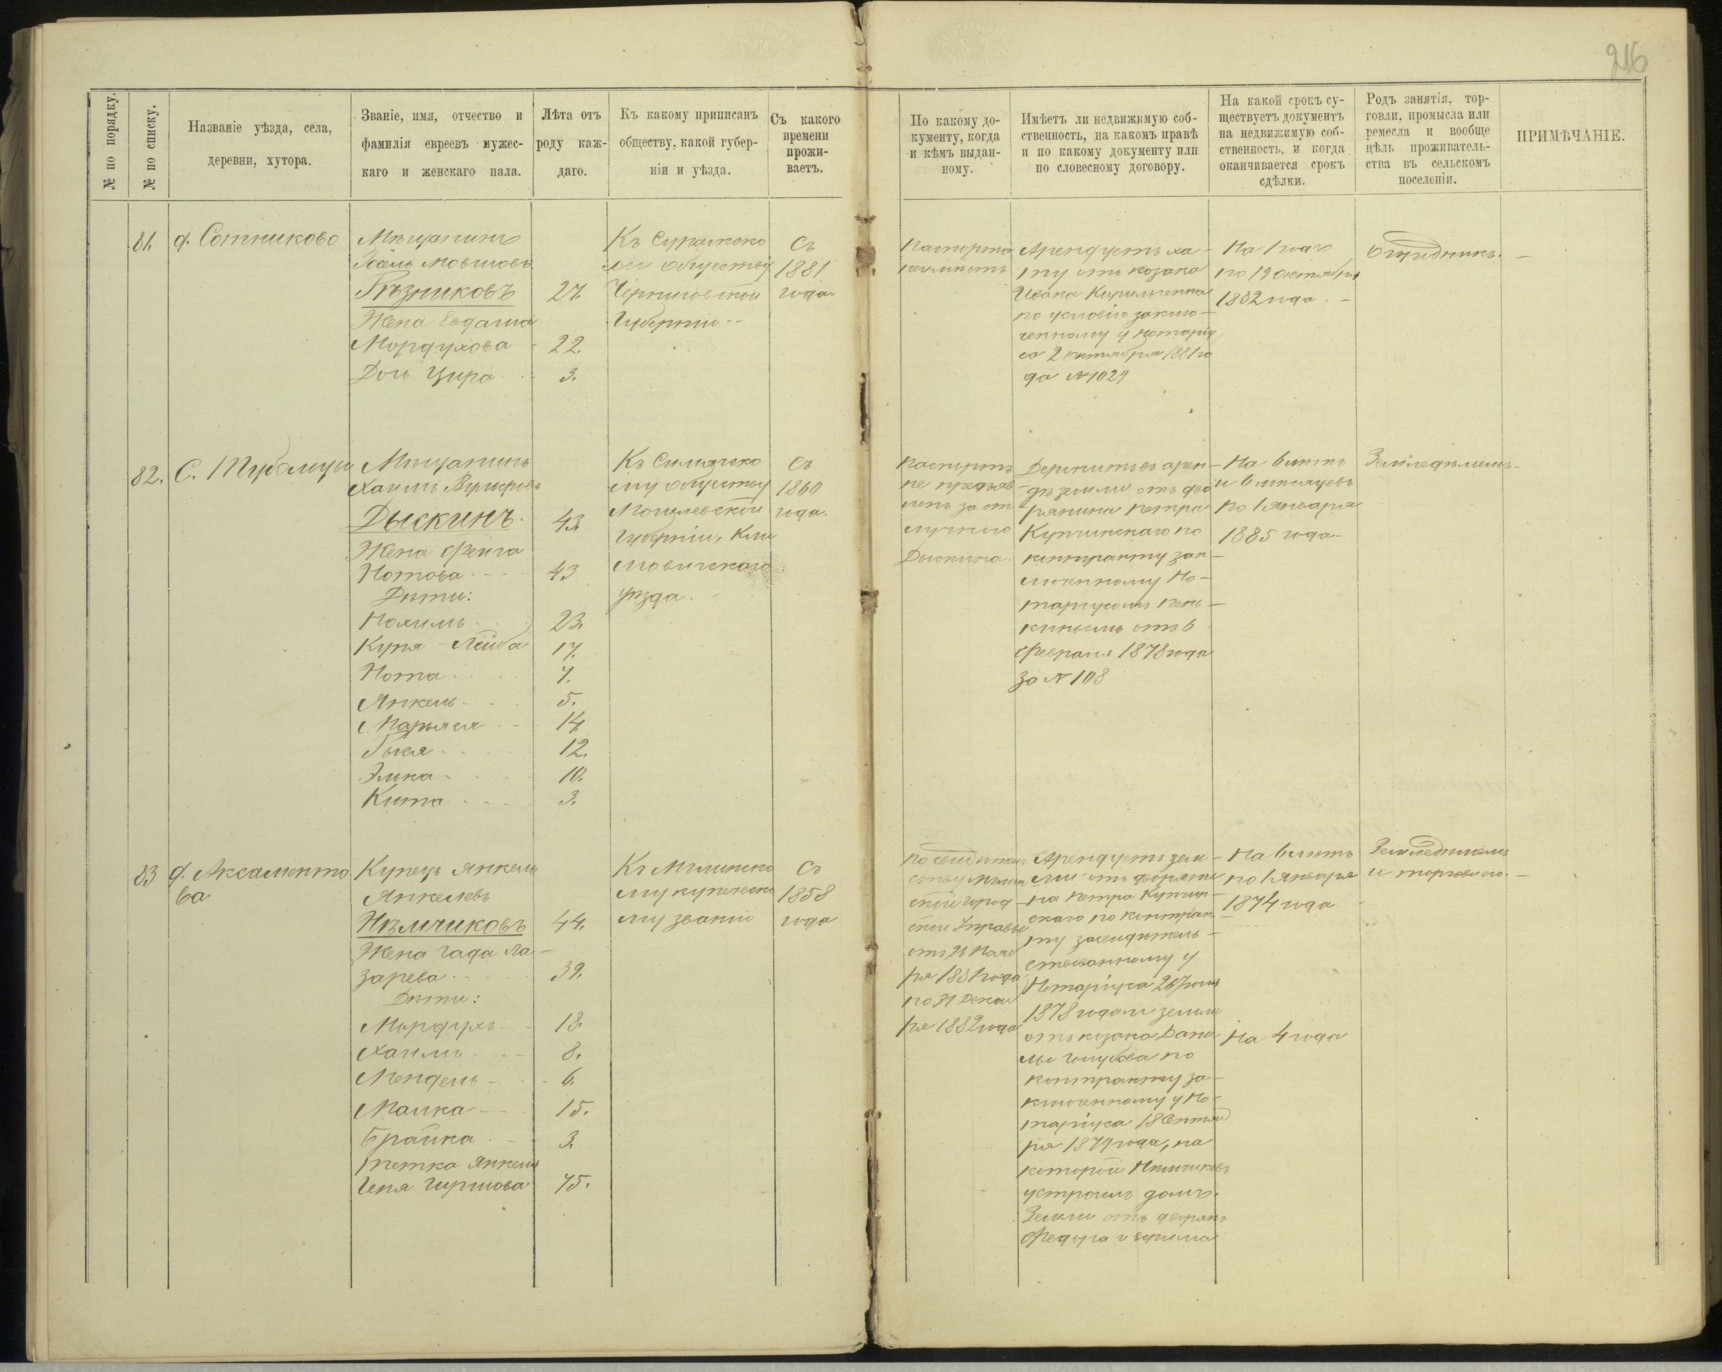 216
№ по порядку.
№ по списку.
Названіе уѣзда, села,
деревни, хутора.
Званіе, имя, отчество и
фамилія евреевъ мужес-
каго и женскаго пала.
Лѣта отъ
роду каж-
даго.
Къ какому приписанъ
обществу, какой губер-
ніи и уѣзда.
Съ какого
времени
прожи-
ваетъ.
По какому до-
кументу, когда
и кѣмъ выдан-
ному.
Имѣетъ ли недвижимую соб-
ственность, на какомъ правѣ
и по какому документу или
по словесному договору.
На какой срокъ су-
ществуетъ документъ
на недвижимую соб-
ственность, и когда
оканчивается срокъ
сдѣлки.
Родъ занятія, тор-
говли, промысла или
ремесла и вообще
цѣль проживатель-
ства въ сельскомъ
поселеніи.
ПРИМѢЧАНІЕ.
81.
д. Сотниково
Мѣщанинъ
Мовшовъ
Рѣзниковъ
27.
Жена
Мордухова
22.
Дочь Цира
3.
Къ Суражско
му обществу
Черниговской
Губерніи
Съ
1881
года.
Паспорта
неимѣетъ
Арендуетъ ха-
ту отъ козака
Ивана Кириленка
по условію заклю-
ченному у нотарiу
са 2 октября 1881 го
да №1029
На 1 годъ
по 19 октября
1882 года.
82.
С.
Мѣщанинъ
Хаимъ
Дыскинъ.
43.
Жена Фейга
Нотова
43
Дѣти:
Нохимъ
23.
Куня-Лейба
17.
Нота
7.
Янкель
5.
Марьяся
14
Гися
12.
Элька
10.
Кита
3.
Къ
му обществу
Могилевской
Губерніи, Кли
мовичскаго
уѣзда.
Съ
1860
года.
Паспортъ
не предъяв
ленъ за от
лучкою
Дыскина
Держитъ въ арен-
дѣ земли отъ дво
рянина Петра
по
контракту зак-
люченному Но-
таріусомъ
отъ 6
февраля 1878 года
за №108
На 6 лѣтъ
и 6 мѣсяцевъ
по 1 Января
1885 года
Земледѣлецъ
83
д. Аксаменто
ва
Купецъ Янкель
Янкелевъ
Нѣмчиковъ
44.
Жена Гада Ла-
зарева
39.
Дѣти:
Мордухъ
13.
Хаимъ
8.
Мендель
6.
Малка
15.
Брайка
3.
Тетка Янкеля
Геня Гиршова
75.
Къ Мглинско
му купеческо
му званію
Съ
1858
года
По свидѣтель
ству Мглин
ской Город-
ской Управы
отъ 26 Нояб
ря 1881 года
по 31 Декаб
ря 1882 года
Арендуетъ зем-
ли отъ дворяни
на Петра
скаго по контрак-
ту засвидѣтель-
ствованному у
Нотаріуса 26 Іюня
1878 года и земли
отъ козака Дани-
лы Голубова по
контракту за-
ключенному у Но-
таріуса 18 Сентяб
ря 1879 года, на
которой Нѣмчиковъ
устроилъ домъ.
Земли отъ дворянъ
Федора и Ефима
На 6 лѣтъ
по 1 Января
1874 года
На 4 года
Земледѣлецъ
и торговля.